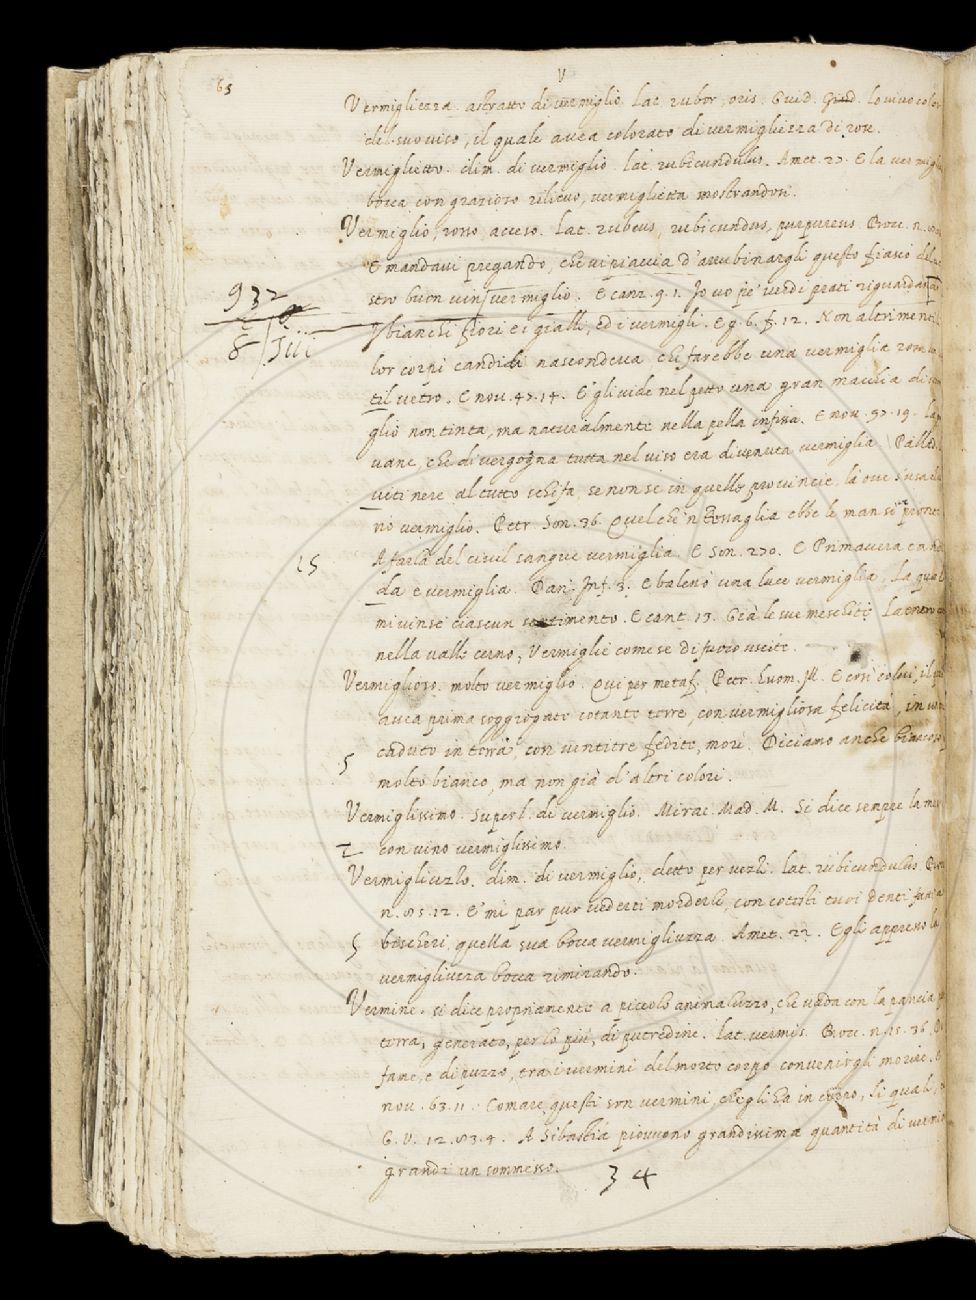 65
V
Vermigliezza. astratto di vermiglio. Lat. rubor, oris. Guid. Giud. Lo vivo color
del suo viso, il quale avea colorato di vermigliezza di rose.
Vermiglietto. dim. di vermiglio. Lat. rubicundulus. Amet. 27. E la vermiglia
bocca con grazioso rilievo, vermiglietta mostrandosi.
Vermiglio, rosso, acceso. Lat. rubeus, rubicundus, purpureus. Bocc. n.
E mandavi pregando, che vi piaccia d'arrubinargli questo fiasco del
stro buon vin vermiglio. E canz. 9. 1. Io vo pe' verdi prati riguardando
937
8 Jiii
I bianchi fiori e i gialli, ed i vermigli. E g. 6. f. 12. Non altrimenti
lor corpi candidi nascondeva che farebbe una vermiglia rosa
til vetro. E nov. 47. 14. Egli vide nel petto una gran macchia di
glio non tinta, ma naturalmente nella pella infissa. E nov. 97. 19. La
vane, che di vergogna tutta nel viso era divenuta vermiglia. Pallad.
viti nere al tutto schifa, se non se in quelle provincie, là ove s'usa
no vermiglio. Petr. Son. 36. Quel che 'n Tessaglia ebbe le man sì pronte
15
A farla del civil sangue vermiglia. E son. 270. E Primavera candi
da e vermiglia. Dan. Inf. 3. E balenò una luce vermiglia, La qual
mi vinse ciascun sentimento. E cant. 13. Già le sue meschite Là entro
nella valle cerno, Vermiglie come se di fuoco uscite.
Vermiglioso. molto vermiglio. Qui per metaf. Petr. Huom. Ill. E così colui, il
avea prima soggiogato cotante terre, con vermigliosa felicità, in
5
caduto in terra, con ventitre fedite, morì. Diciamo anche biancoso
molto bianco, ma non già d'altri colori.
Vermiglissimo. Superl. di vermiglio. Mirac. Mad. M. Si dice sempre la
2
con vino vermiglissimo.
Vermigliuzzo. dim. di vermiglio, detto per vezzi. Lat. rubicundulus.
n. 85. 12. E' mi par pur vederti morderle, con cotesti tuoi denti fatti a
5
bischeri, quella sua bocca vermigliuzza. Amet. 22. Egli appresso la
vermigliuzza bocca rimirando.
Vermine. si dice propriamente a piccolo animaluzzo, che vada con la pancia
terra, generato, per lo più, di putredine. Lat. vermis. Bocc. n. 15. 36.
fame, e di puzzo, tra i vermini del morto corpo convenirgli morire.
nov. 63. 11. Comare, questi son vermini, ch'egli ha in corpo, li quali,
G. V. 12. 83. 4. A Sibastia piovvono grandissima quantità di vermini
grandi un sommesso.
34